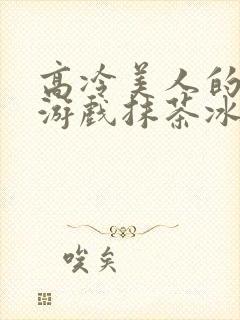 高冷美人的
游戏抹茶冰
唉矣